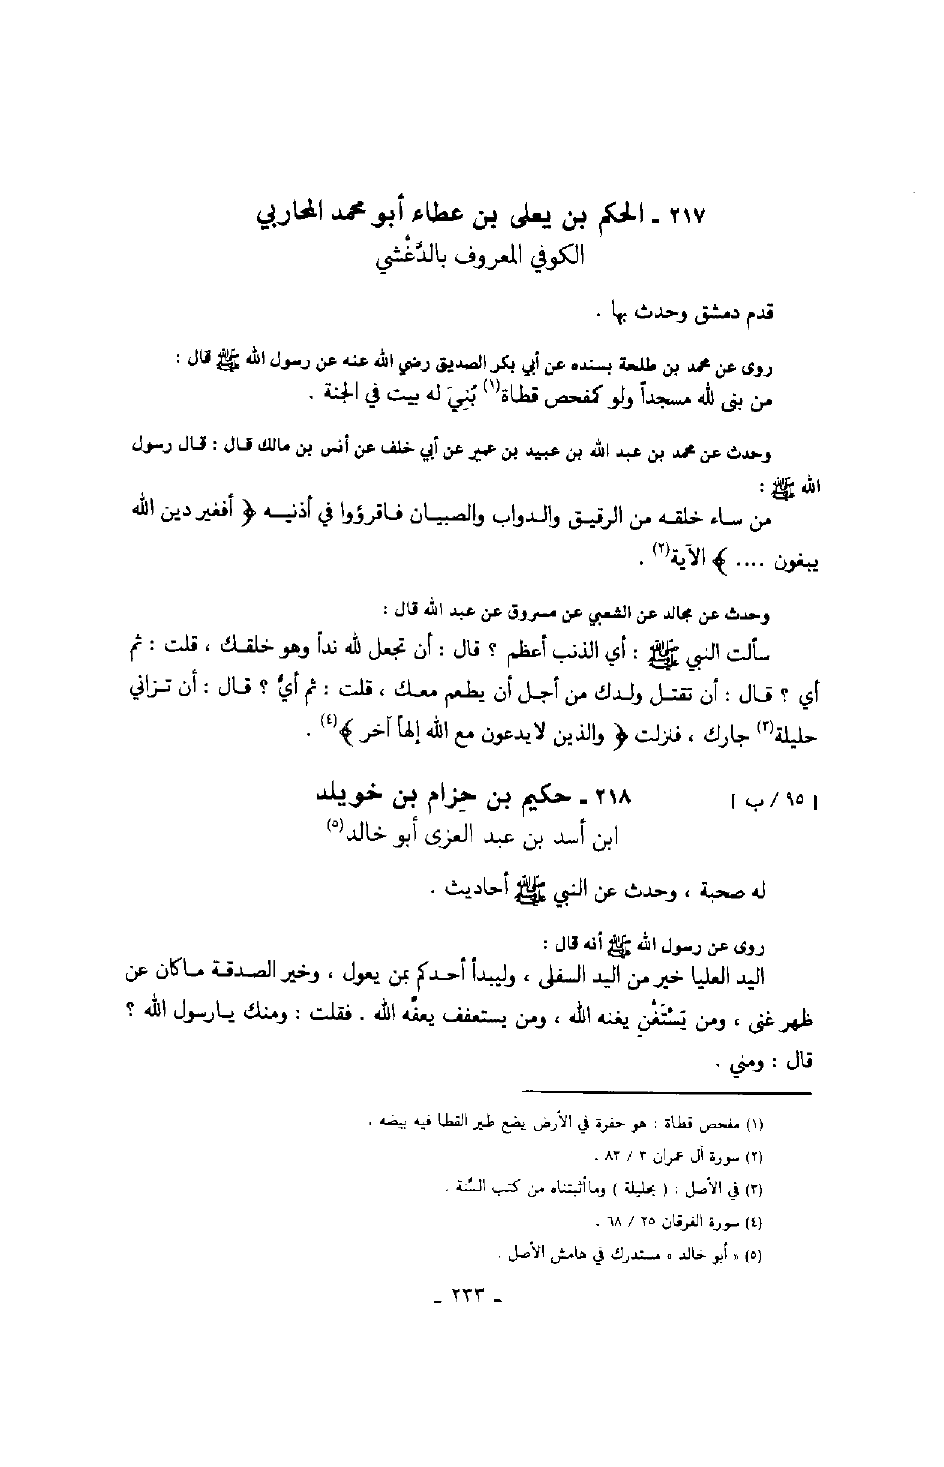 ٢١٧ ـ الحكم بن يعلى بن عطاء أبو محمد المحاربي
الكوفي المعروف بالدُّغْشي
قدم دمشق وحدث بها .
روى عن محمد بن طلحة بسنده عن أبي بكر الصديق رضي الله عنه عن رسول الله ﷺ قال :
من بنى لله مسجداً ولو كمفحص قطاة(١) بُنِيَ له بيت في الجنة .
وحدث عن محمد بن عبد الله بن عبيد بن عمير عن أبي خلف عن أنس بن مالك قال : قال رسول
الله ﷺ :
من ساء خلقه من الرقيق والدواب والصبيان فاقرؤوا في أذنيه ﴿ أفغير دين الله
يبغون .... ﴾ الآية(٢) .
وحدث عن مجالد عن الشعبي عن مسروق عن عبد الله قال :
سألت النبي ﷺ : أي الذنب أعظم ؟ قال : أن تجعل لله نداً وهو خلقك ، قلت : ثم
أي ؟ قال : أن تقتل ولدك من أجل أن يطعم معك ، قلت : ثم أيُّ ؟ قال : أن تزاني
حليلة(٣) جارك ، فنزلت ﴿ والذين لا يدعون مع الله إلهاً آخر ﴾(٤) .
[ ٩٥ / ب ] ٢١٨ ـ حكيم بن حِزام بن خويلد
ابن أسد بن عبد العزى أبو خالد(٥)
له صحبة ، وحدث عن النبي ﷺ أحاديث .
روى عن رسول الله ﷺ أنه قال :
اليد العليا خير من اليد السفلى ، وليبدأ أحدكم بمن يعول ، وخير الصدقة ما كان عن
ظهر غنى ، ومن يَسْتَغْنِ يغنه الله ، ومن يستعفف يعفَّه الله . فقلت : ومنك يا رسول الله ؟
قال : ومني .
(١) مفحص قطاة : هو حفرة في الأرض يضع طير القطا فيه بيضه .
(٢) سورة آل عمران ٣ / ٨٣ .
(٣) في الأصل : ( بحليلة ) وما أثبتناه من كتب السُّنة .
(٤) سورة الفرقان ٢٥ / ٦٨ .
(٥) « أبو خالد » مستدرك في هامش الأصل .
ـ ٢٣٣ ـ